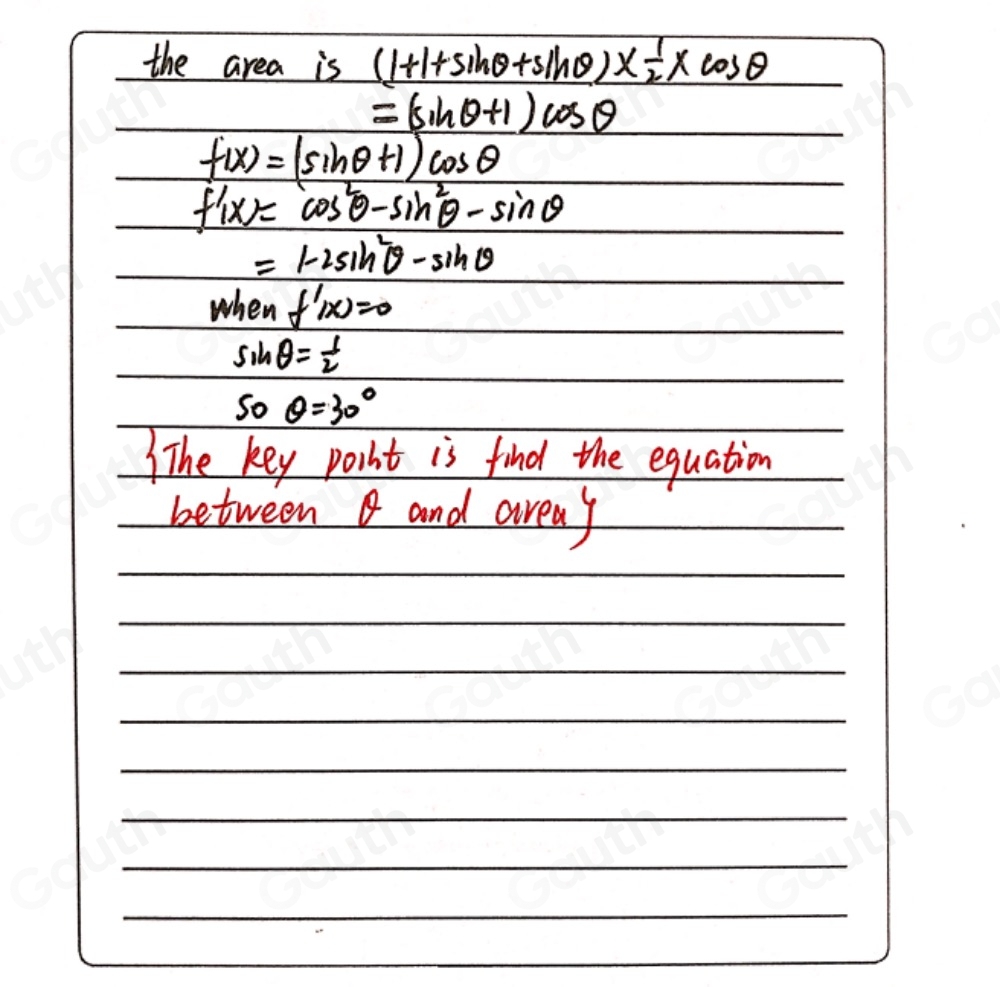 the area is (1+1+sinθ+sinθ)×½×cosθ
=(sinθ+1)cosθ
f(x)=(sinθ+1)cosθ
f'(x)=cos²θ-sin²θ-sinθ
=1-2sin²θ-sinθ
when f'(x)=0
sinθ=½
so θ=30°
{The key point is find the equation
between θ and area}